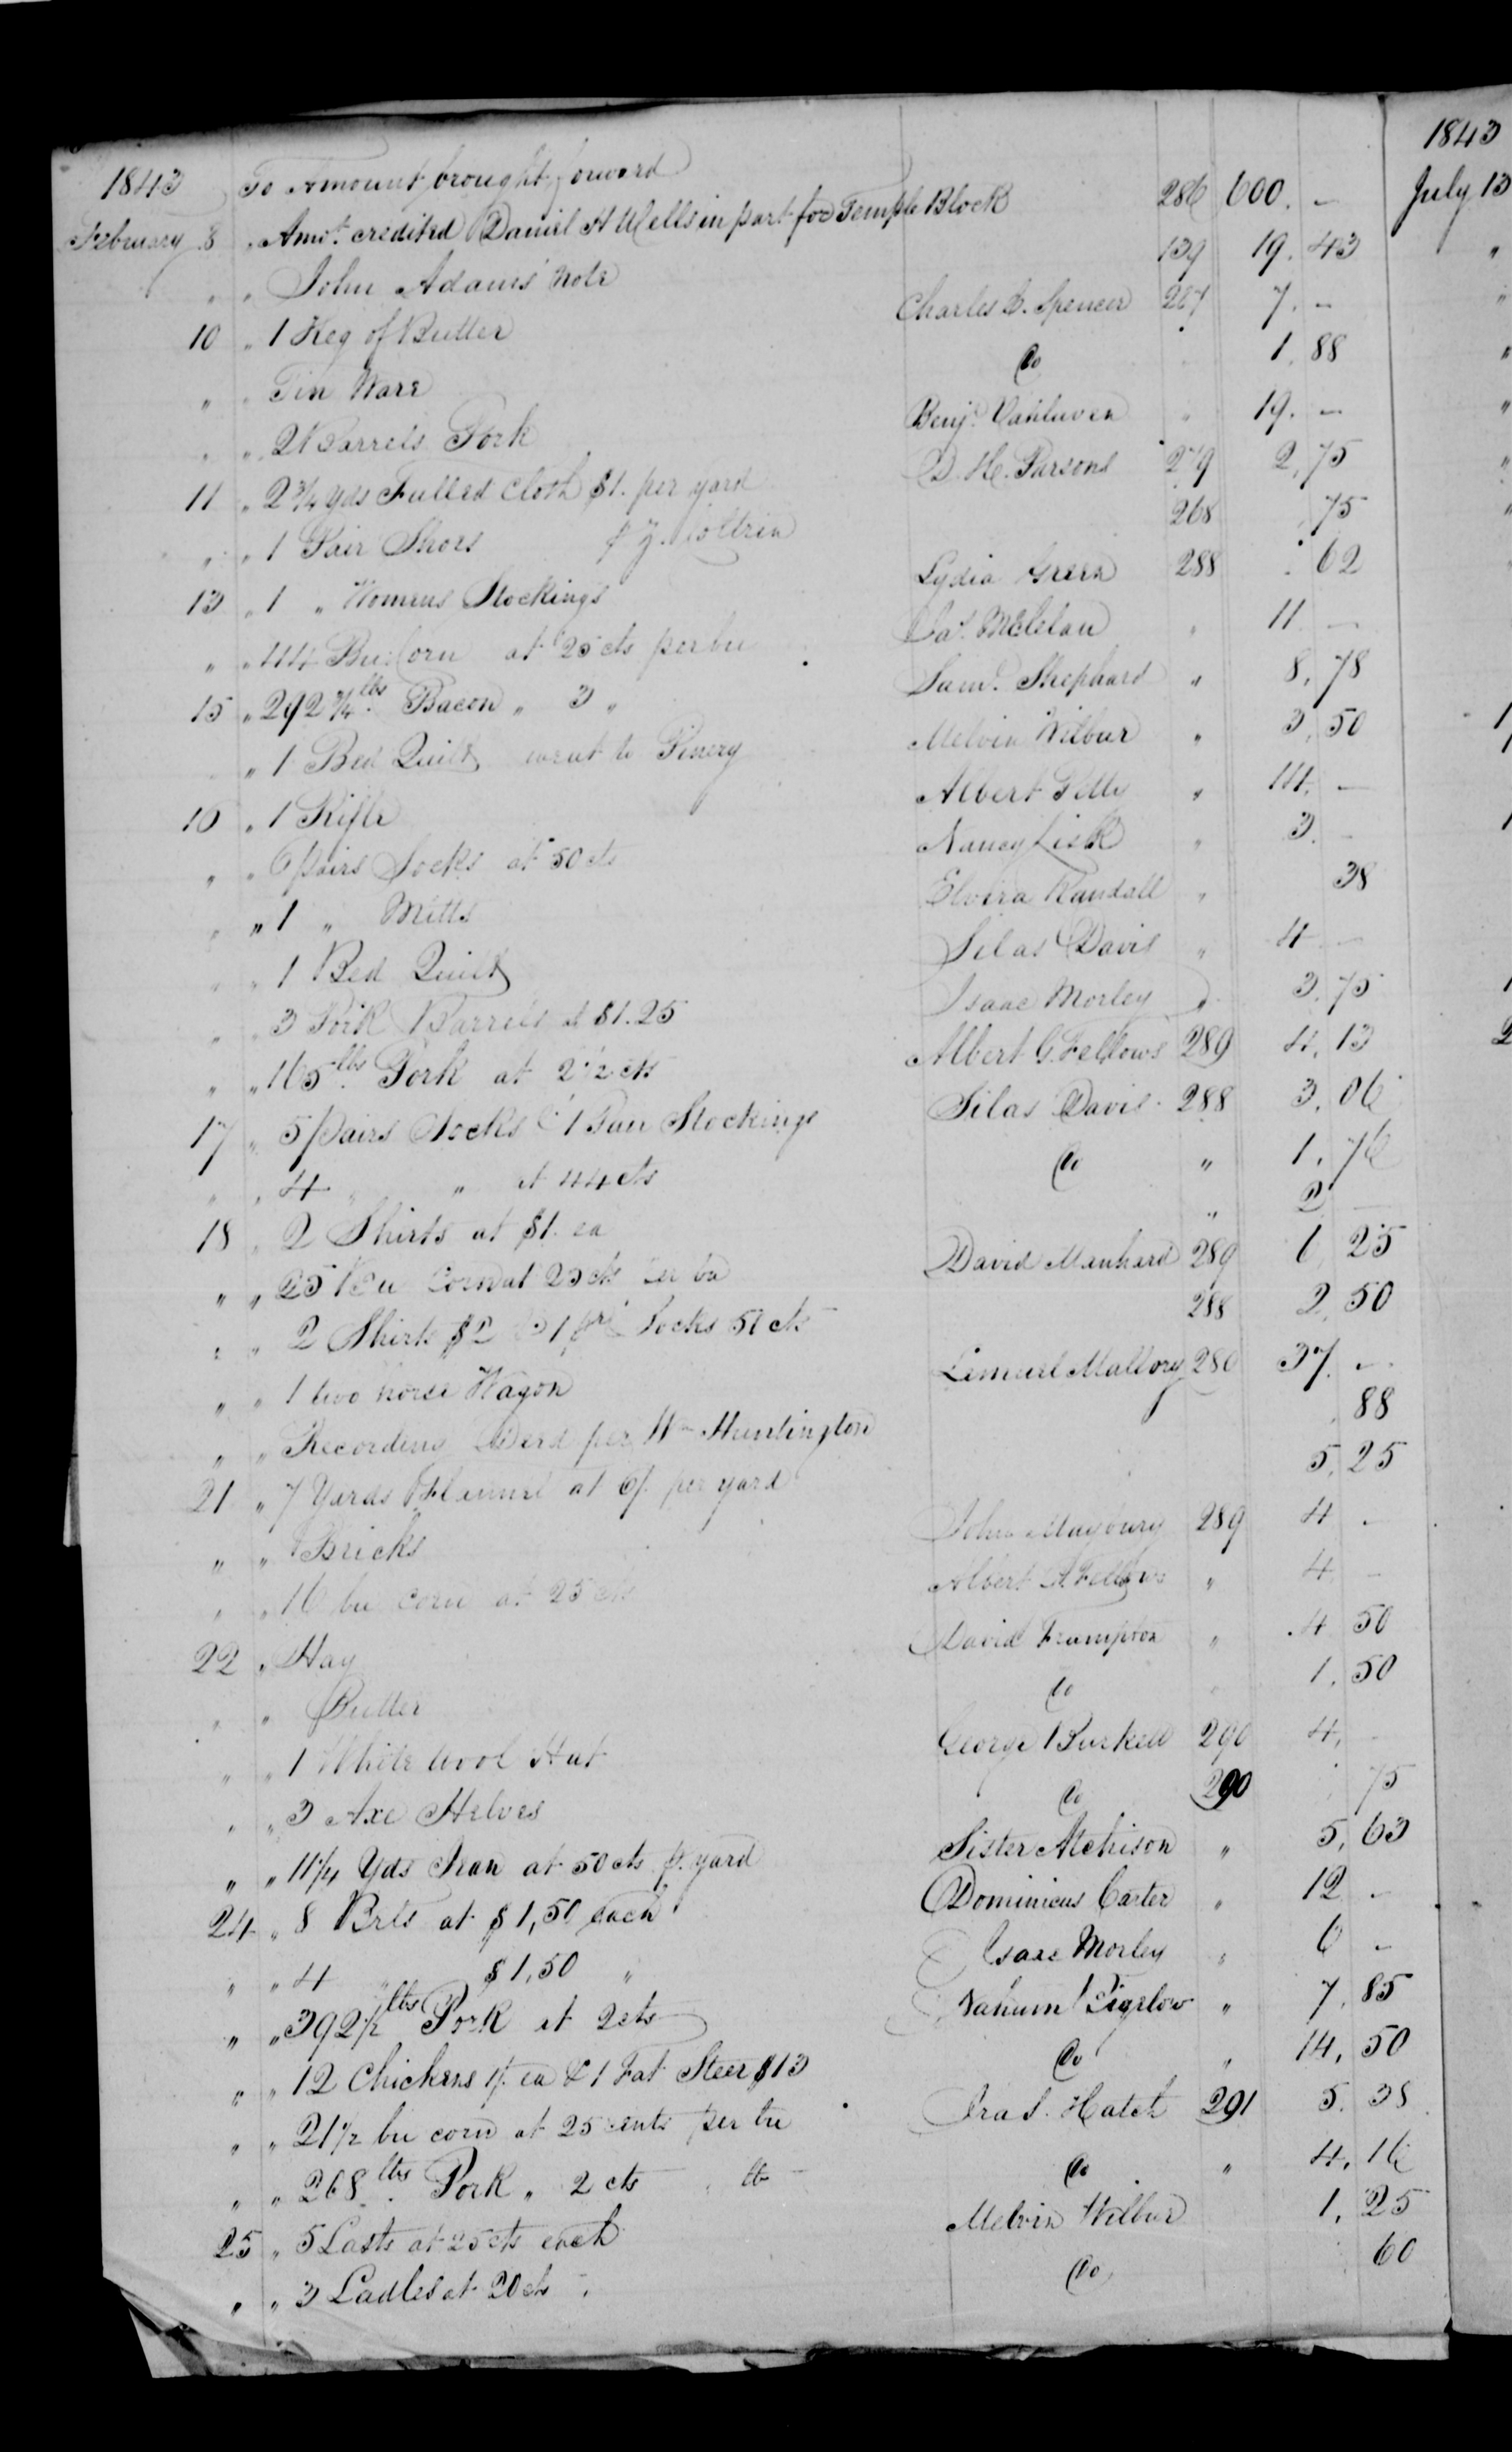 1843 To Amount brought forward
February 8 " Amot. credited Daniel H Wells in part for Temple Block 286 600. -
" " John Adams' Note 139 19. 43
10 " 1 Keg of Butter Charles B. Spencer 287 7. -
" " Tin Ware Do 1. 88
" " 2 Barrels Pork Benj. Vanluven " 19. -
11 " 2 3/4 yds Fulled Cloth $1. per yard D. H. Parsons 279 2, 75
" " 1 Pair Shoes Z. Coltrin 268 , 75
13 " 1 " Womens Stockings Lydia Green 288 . 62
" " 44 Bu Corn at 25 cts per bu Jas. McClelan " 11 -
15 " 292 3/4 lbs. Bacon " 3 " Saml. Shephard " 8, 78
" 1 Bed Quilt went to Pinery Melvin Wilbur " 3, 50
16 " 1 Rifle Albert Petty " 14. -
" " 6 pairs Socks at 50 cts Nancy Lisk " 3. -
" " 1 " Mitts Elvira Randall " 38
" " 1 Bed Quilt Silas Davis " 4 -
" " 3 Pork Barrels at $1.25 Isaac Morley " 3. 75
" " 165 lbs. Pork at 2 1/2 cts Albert G. Fellows 289 4, 13
17 " 5 pairs Socks & 1 Pair Stockings Silas Davis 288 3, 06
" " 4 " " at 44 cts Do " 1, 76
18 " 2 Shirts at $1. ea " 2 -
" " 25 Bu Corn at 25 cts per bu David Manhard 289 6 25
" " 2 Shirts $2 & 1 pr Socks 50 cts 288 2, 50
" " 1 two horse Wagon Lemuel Mallory 280 37. -
" " Recording Deed per Wm Huntington , 88
21 " 7 Yards Flannel at 6/ per yard 5, 25
" " Bricks John Maybury 289 4 -
" " 16 bu corn at 25 cts Albert G. Fellows " 4 -
22 " Hay David Frampton " 4 50
" " Butter Do 1, 50
" " 1 White wool Hat George Burkett 290 4, -
" " 3 Axe Helves Do 290 75
" " 11 1/4 Yds Jean at 50 cts p. yard Sister Atchison " 5, 63
24 " 8 Brls at $1,50 each Dominicus Carter " 12 -
" " 4 " $1,50 " Isaac Morley " 6 -
" " 392 1/2 lbs Pork at 2 cts Nahum Bigelow " 7, 85
" " 12 Chickens 1/ ea & 1 Fat Steer $13 Do " 14, 50
" " 21 1/2 bu corn at 25 cents per bu Ira S. Hatch 291 5. 38
" " 268 lbs. Pork " 2 cts " lb Do " 4, 16
25 " 5 Lasts at 25 cts each Melvin Wilbur 1, 25
" " 3 Ladles at 20 cts " Do 60
1843
July 13